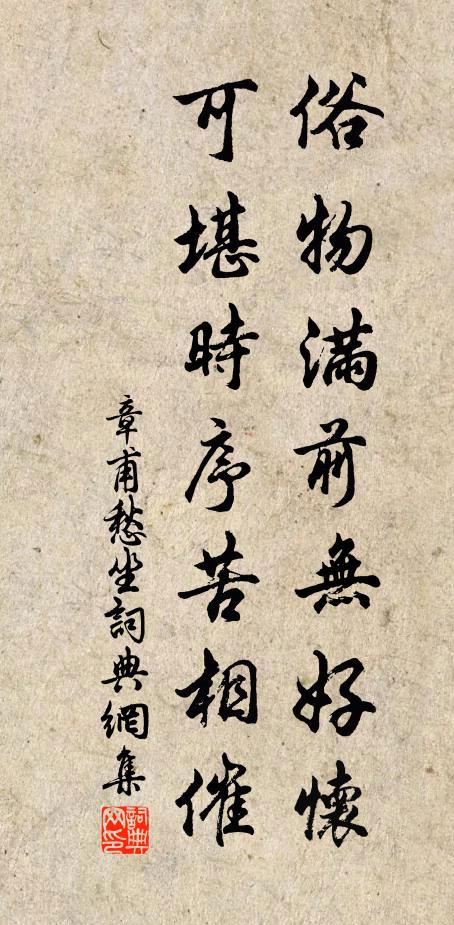 俗物滿前無好懷
可堪時序苦相催
章甫愁坐詞典網集
詞典網印